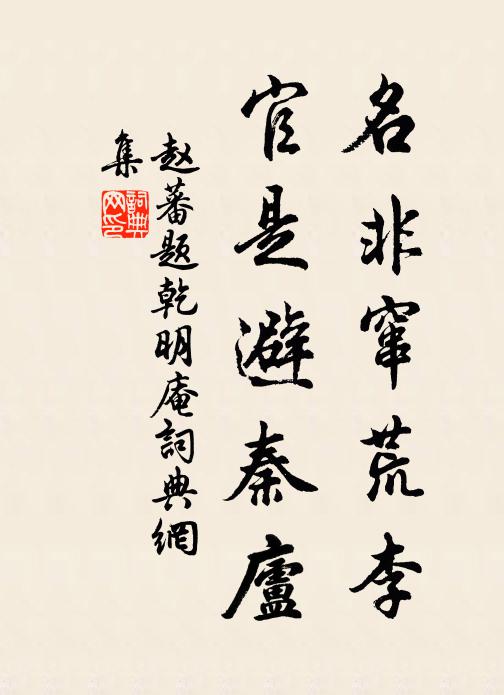 名非窜荒李
官是避秦廬
赵蕃题乾明庵詞典網
集
詞典網印